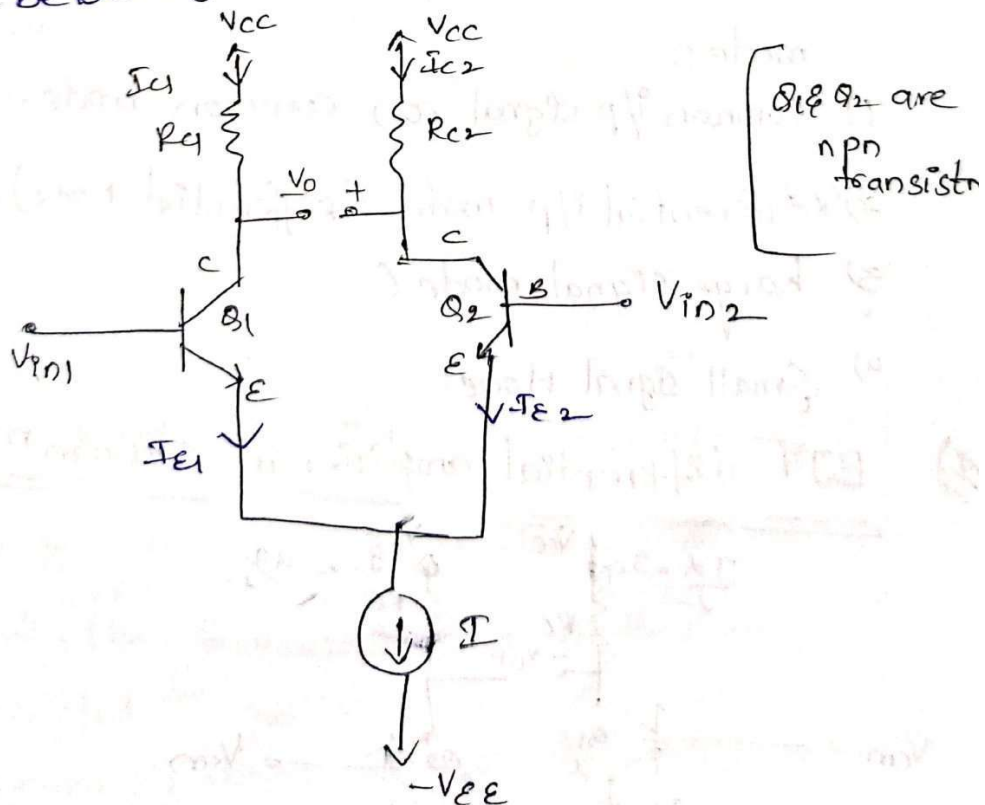 VCC VCC
IC1 IC2
RC1 RC2
Q1 & Q2 are
npn
transistr
Vo +
C C
Q1 Q2 B Vin2
Vin1
E E
IE1 IE2
I
-VEE